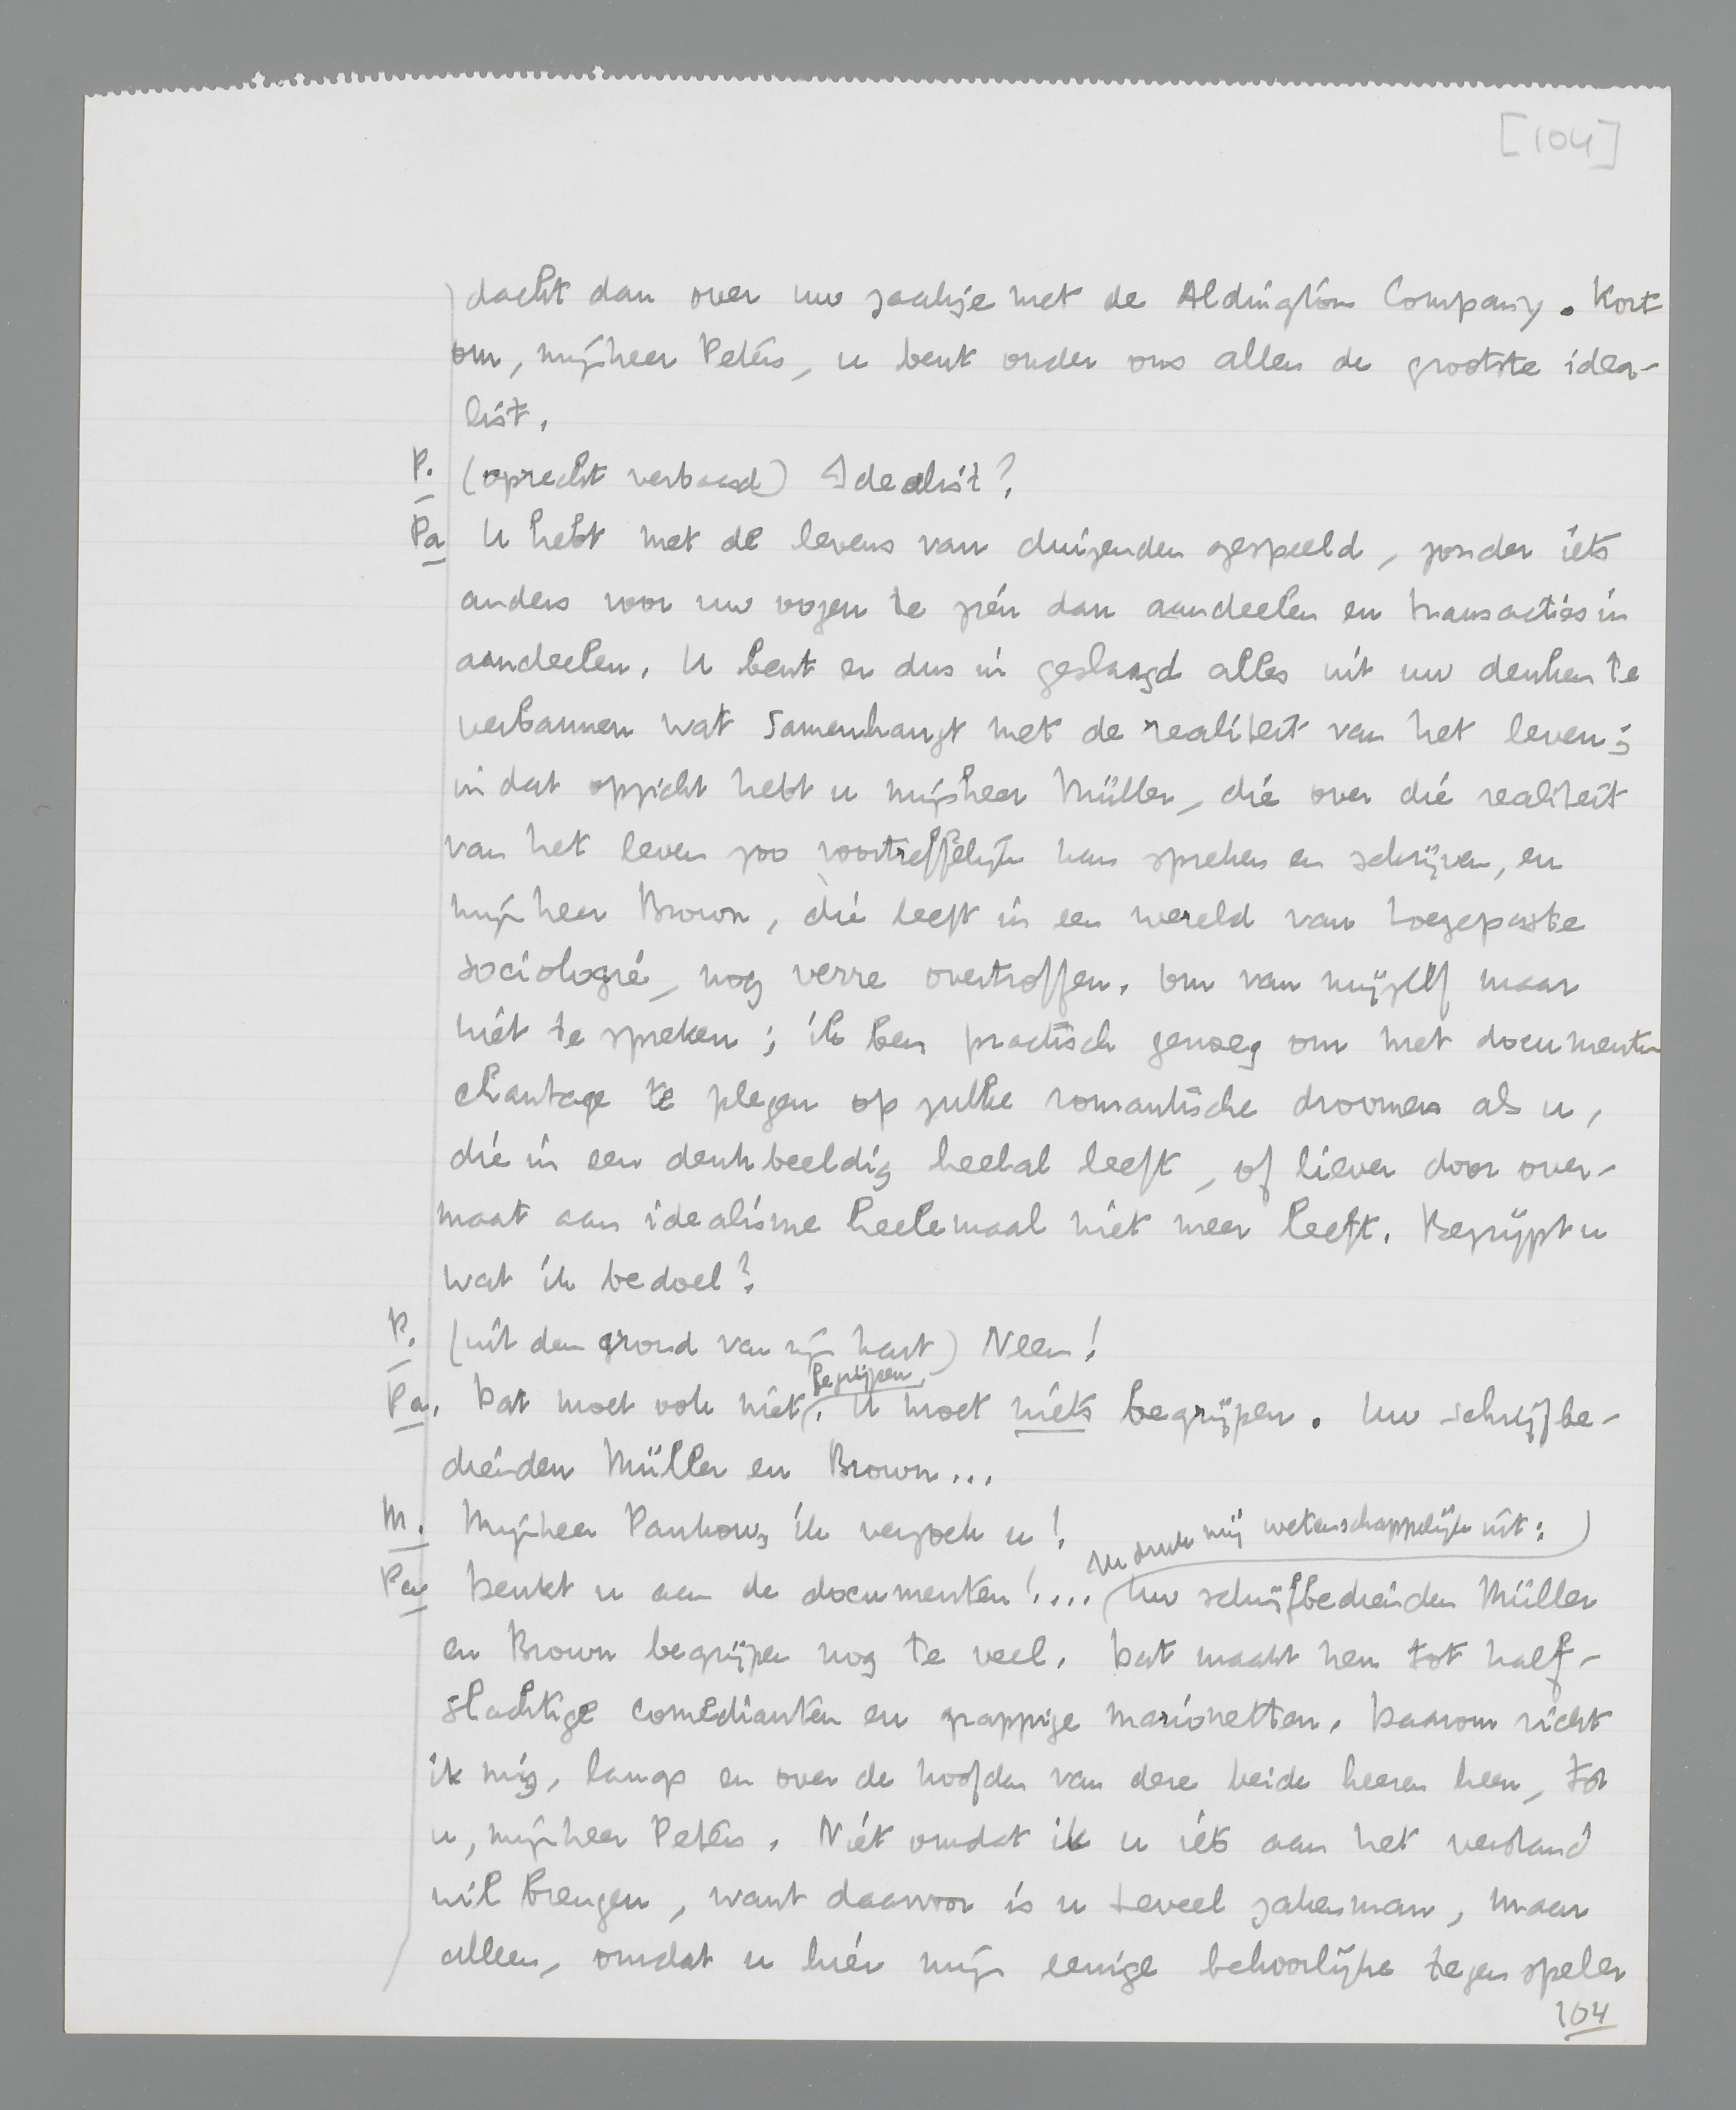 [104]
dacht dan over uw zaakje met de Aldington Company. Kort
om, mijnheer Peters, u bent onder ons allen de grootste idea-
list.
P. (oprecht verbaasd) Idealist?
Pa U hebt met de levens van duizenden gespeeld, zonder iets
anders voor uw oogen te zien dan aandeelen en transacties in
aandeelen. U bent er dus in geslaagd alles uit uw denken te
verbannen wat samenhangt met de realiteit van het leven;
in dat opzicht hebt u mijnheer Müller, die over die realiteit
van het leven zoo voortreffelijk kan spreken en schrijven, en
mijnheer Brown, die leeft in een wereld van toegepaste
sociologie, nog verre overtroffen. Om van mijzelf maar
niet te spreken; ik ben practisch genoeg om met documenten
chantage te plegen op zulke romantische droomers als u,
die in een denkbeeldig heelal leeft, of liever door over-
maat aan idealisme heelemaal niet meer leeft. Begrijpt u
wat ik bedoel?
P. (uit den grond van zijn hart) Neen!
Pa. Dat moet ook niet. U moet niets begrijpen. Uw schrijfbe-
begrijpen,
dienden Müller en Brown...
M. Mijnheer Pankow, ik verzoek u!
Pa Denkt u aan de documenten!.... Uw schrijfbedienden Müller
ik druk mij wetenschappelijk uit:
en Brown begrijpen nog te veel. Dat maakt hen tot half-
slachtige comedianten en grappige marionetten. Daarom richt
ik mij, langs en over de hoofden van deze beide heeren heen, tot
u, mijnheer Peters. Niet omdat ik u iets aan het verstand
wil brengen, want daarvoor is u teveel zakenman, maar
alleen, omdat u hier mijn eenige behoorlijke tegenspeler
104